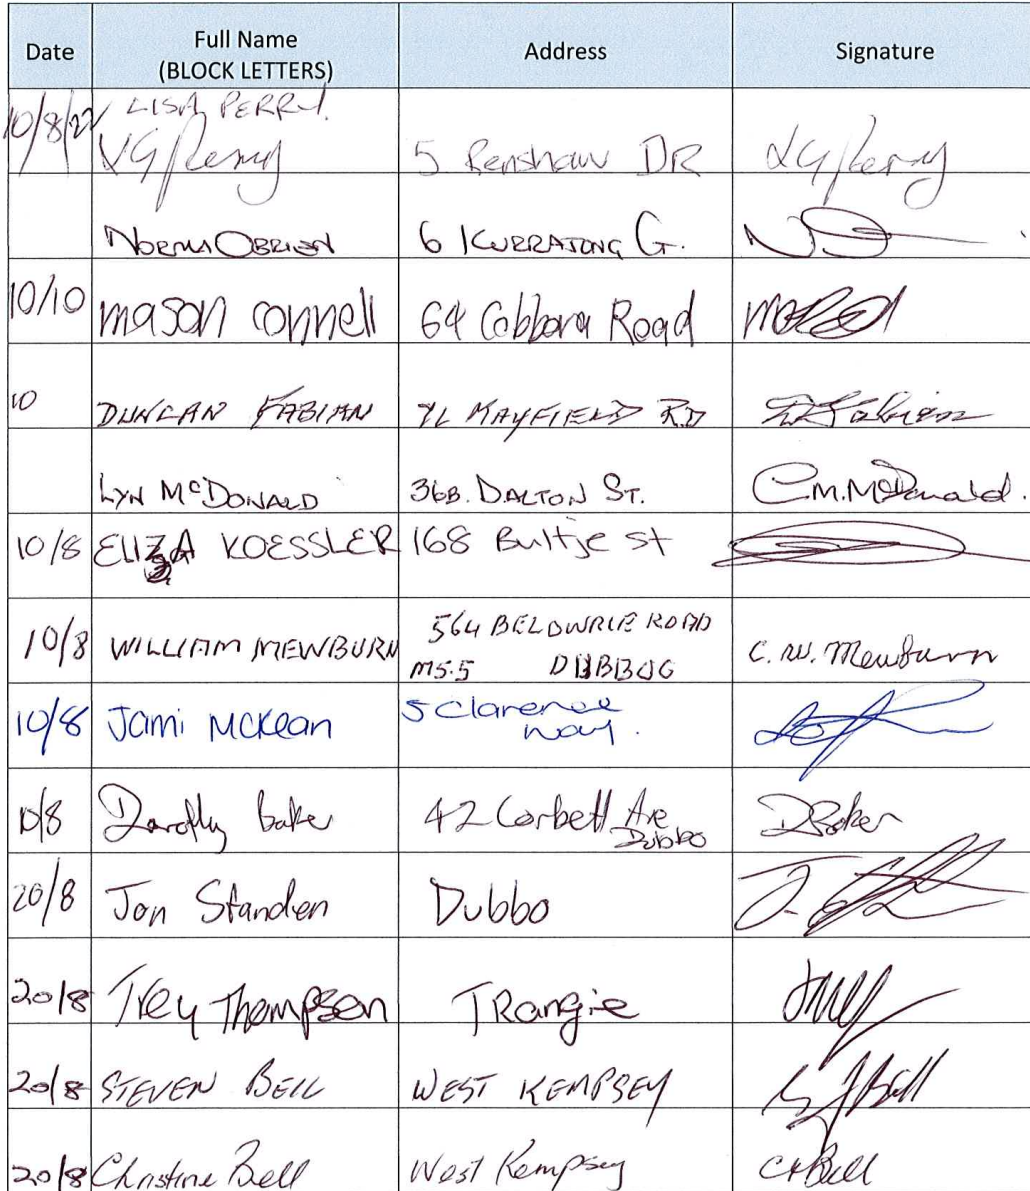 Date Full Name (BLOCK LETTERS) Address Signature
10/8/22 LISA PERRY.
LGPerry 5 Renshaw DR LGPerry
NORMA OBRIEN 6 KURRAJONG G.
10/10 mason connell 64 Cobbora Road
10 DUNCAN FABIAN MAYFIELD RD
LYN McDONALD 36B. DALTON ST. C.M.McDonald.
10/8 ELIZA KOESSLER 168 Bultje st
10/8 WILLIAM MEWBURN 564 BELOWRIE ROAD C. W. Mewburn
MS.5 DUBBO
10/8 Jami McKean 5 Clarence
way.
10/8 Dorothy baker 42 Corbett Ave DBaker
Dubbo
20/8 Jon Standen Dubbo
20/8 Trey Thompson TRangie
20/8 STEVEN BELL WEST KEMPSEY S J Bell
20/8 Christine Bell West Kempsey CABell